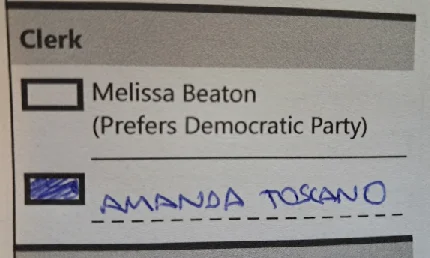 Clerk
Melissa Beaton
(Prefers Democratic Party)
AMANDA TOSCANO